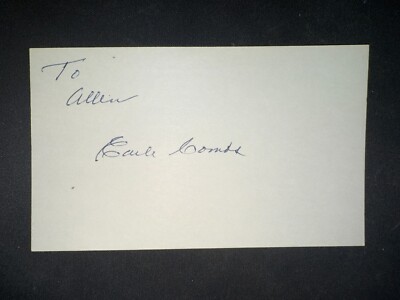 To
Allen
Earle Combs